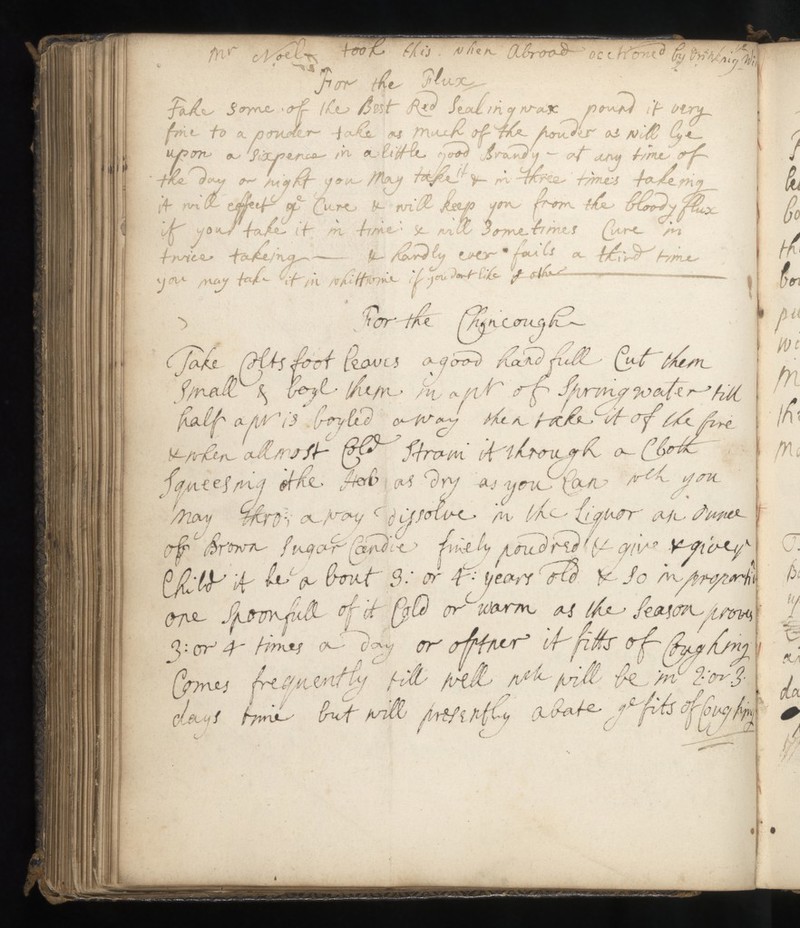 Mr Noel took this when Abroad occtioned by drinking the Wi
For the Flux
Take some of the Best Red Sealingwax pound it very
fine to a pouder take as much of the pouder as will lye
upon a Sixpence in a little good Brandy - at any time of
the day or night you may take it & in three times takeing
it will effect ye Cure & will keep you from the bloody flux
if you take it in time & will Sometimes Cure in
twice takeing - & hardly ever fails a third time
you may take it in whittwine if you dont like ye other
For the Chincough
Take Coltsfoot leaves a good handfull Cut them
Small & boyl them in a pt of Springwater till
half a pt is boyled away then take it of the fire
& when allmost Cold Strain it through a Cloth
Squeesing the Herb as dry as you Can wch you
may thro: away dissolve in the Liquor an ounce
off Brown Sugar Candie finely poudred & give & give ye
Child it be a bout 3: or 4: years old & so in proportion
one Spoonfull of it Cold or warm as the Season proves
3: or 4 times a day or oftner if fitts of Coughing
Comes frequently till well wch will be in 2: or 3:
days time but will presently abate ye fits of Coughing